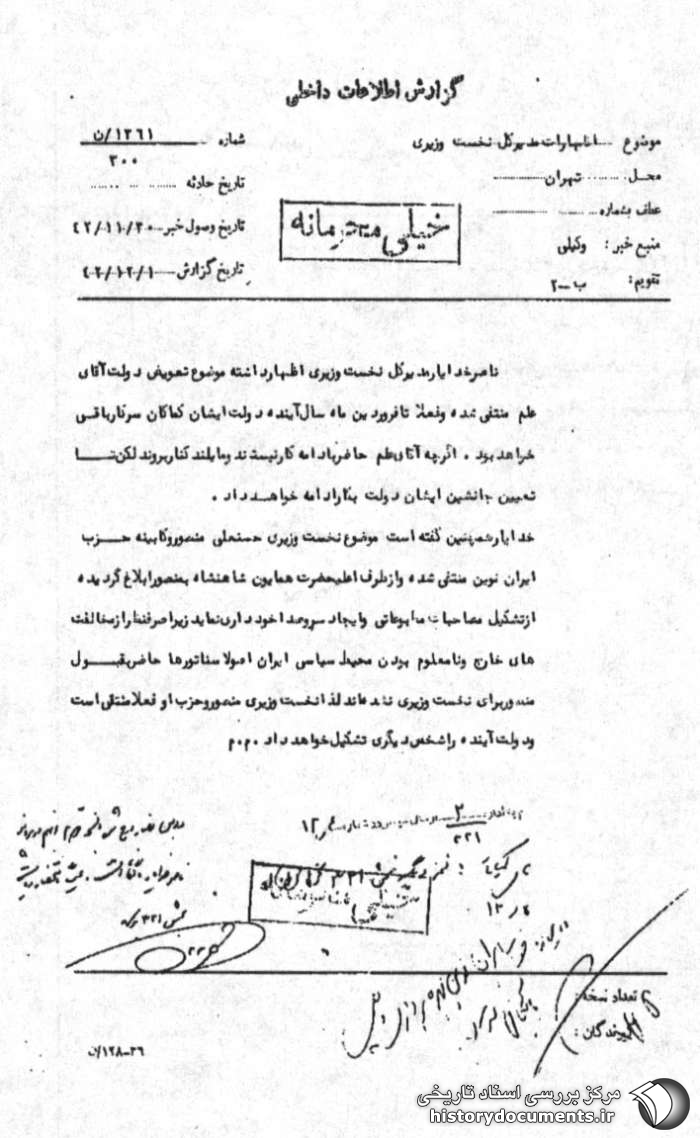 گزارش اطلاعات داخلی
موضوع اظهارات مدیرکل نخست وزیری
شماره ۱۳۶۱/ن
۳۰۰
محل تهران
تاریخ حادثه
عطف بشماره
خیلی محرمانه
تاریخ وصول خبر ۴۲/۱۱/۳۰
منبع خبر : وکیلی
تاریخ گزارش ۴۲/۱۲/۱
تقویم : ب-۲
ناصر خدایار مدیرکل نخست وزیری اظهار داشته موضوع تعویض دولت آقای
علم منتفی شده و فعلا تا فروردین ماه سال آینده دولت ایشان کماکان سرکار باقی
خواهد بود . اگرچه آقای علم حاضر بادامه کار نیستند و مایلند کنار بروند لکن تا
تعیین جانشین ایشان دولت بکار ادامه خواهد داد .
خدایار همچنین گفته است موضوع نخست وزیری حسنعلی منصور و کابینه حزب
ایران نوین منتفی شده و از طرف اعلیحضرت همایون شاهنشاه بمنصور ابلاغ گردیده
از تشکیل مصاحبات مطبوعاتی و ایجاد سروصدا خودداری نماید زیرا صرفنظر از مخالفت
های خارج و نامعلوم بودن محیط سیاسی ایران اصولا سناتورها حاضر بقبول
منصور برای نخست وزیری نشده‌اند لذا نخست وزیری منصور و حزب او فعلا منتفی است
و دولت آینده را شخص دیگری تشکیل خواهد داد . م.م
۳
۳۲۱
بخش ۳۲۱
خیلی محرمانه
تعداد نسخه :
گیرندگان :
۳۶-۱۲۸/ن
مرکز بررسی اسناد تاریخی
historydocuments.ir